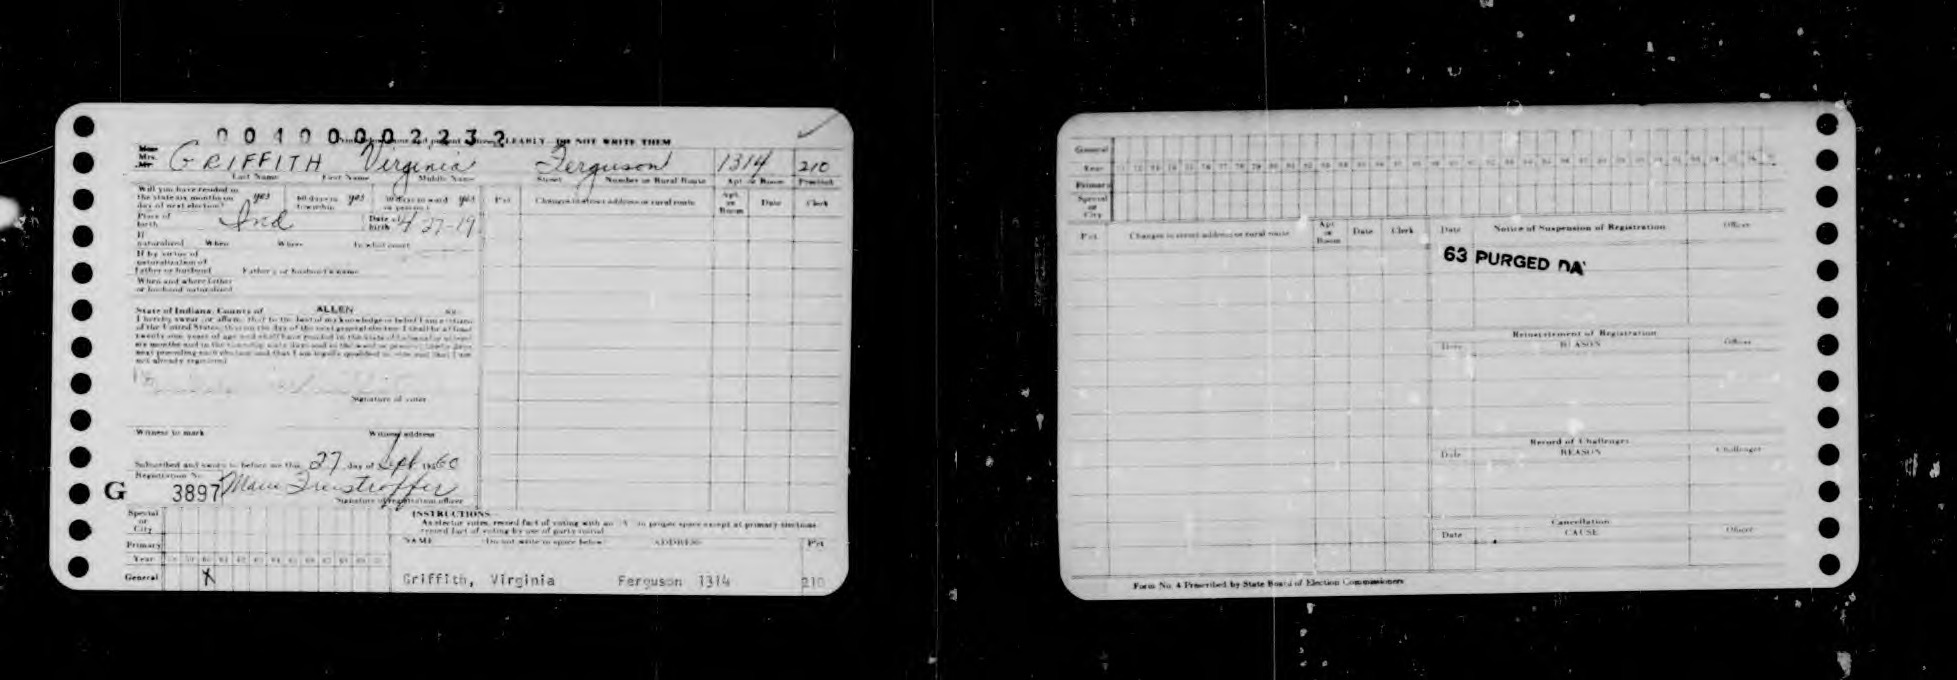 00400002232
LEARLY DO NOT WRITE THEM
Mrs. GRIFFITH Virginia Ferguson 1314 210
Last Name First Name Middle Name Street Number or Rural Route Apt or Room Precinct
Will you have resided in
the state six months on yes 60 days in yes 30 days in ward yes Pct Changes in street address or rural route Apt or Room Date Clerk
day of next election? township or precinct
Place of birth Ind Date of birth 4 27-19
If naturalized When Where In what court
If by virtue of
naturalization of
Father or husband Father's or husband's name
When and where father
or husband naturalized
State of Indiana, County of ALLEN ss:
I hereby swear (or affirm) that to the best of my knowledge or belief I am a citizen
of the United States, that on the day of the next general election I shall be at least
twenty one years of age and shall have resided in the state of Indiana
six months and in the township sixty days and in the ward or precinct thirty days
next preceding such election and that I am legally qualified to vote and that I am
not already registered
Signature of voter
Witness to mark Witness address
Subscribed and sworn to before me this 27 day of Sept 1960
Registration No.
G 3897 Marie Freistroffer
Signature of registration officer
INSTRUCTIONS
As elector votes, record fact of voting with an X in proper space except at primary elections
record fact of voting by use of party initial
NAME Do not write in space below ADDRESS Pct
Special
or
City
Primary
Year 58 59 60 61 62 63 64 65 66 67 68 69 70
General X
Griffith, Virginia Ferguson 1314 210
General
Year
Primary
Special
or
City
Pct Changes in street address or rural route Apt or Room Date Clerk
Date Notice of Suspension of Registration Officer
63 PURGED DA
Reinstatement of Registration
Date REASON Officer
Record of Challenges
Date REASON Challenger
Cancellation
Date CAUSE Officer
Form No. 4 Prescribed by State Board of Election Commissioners